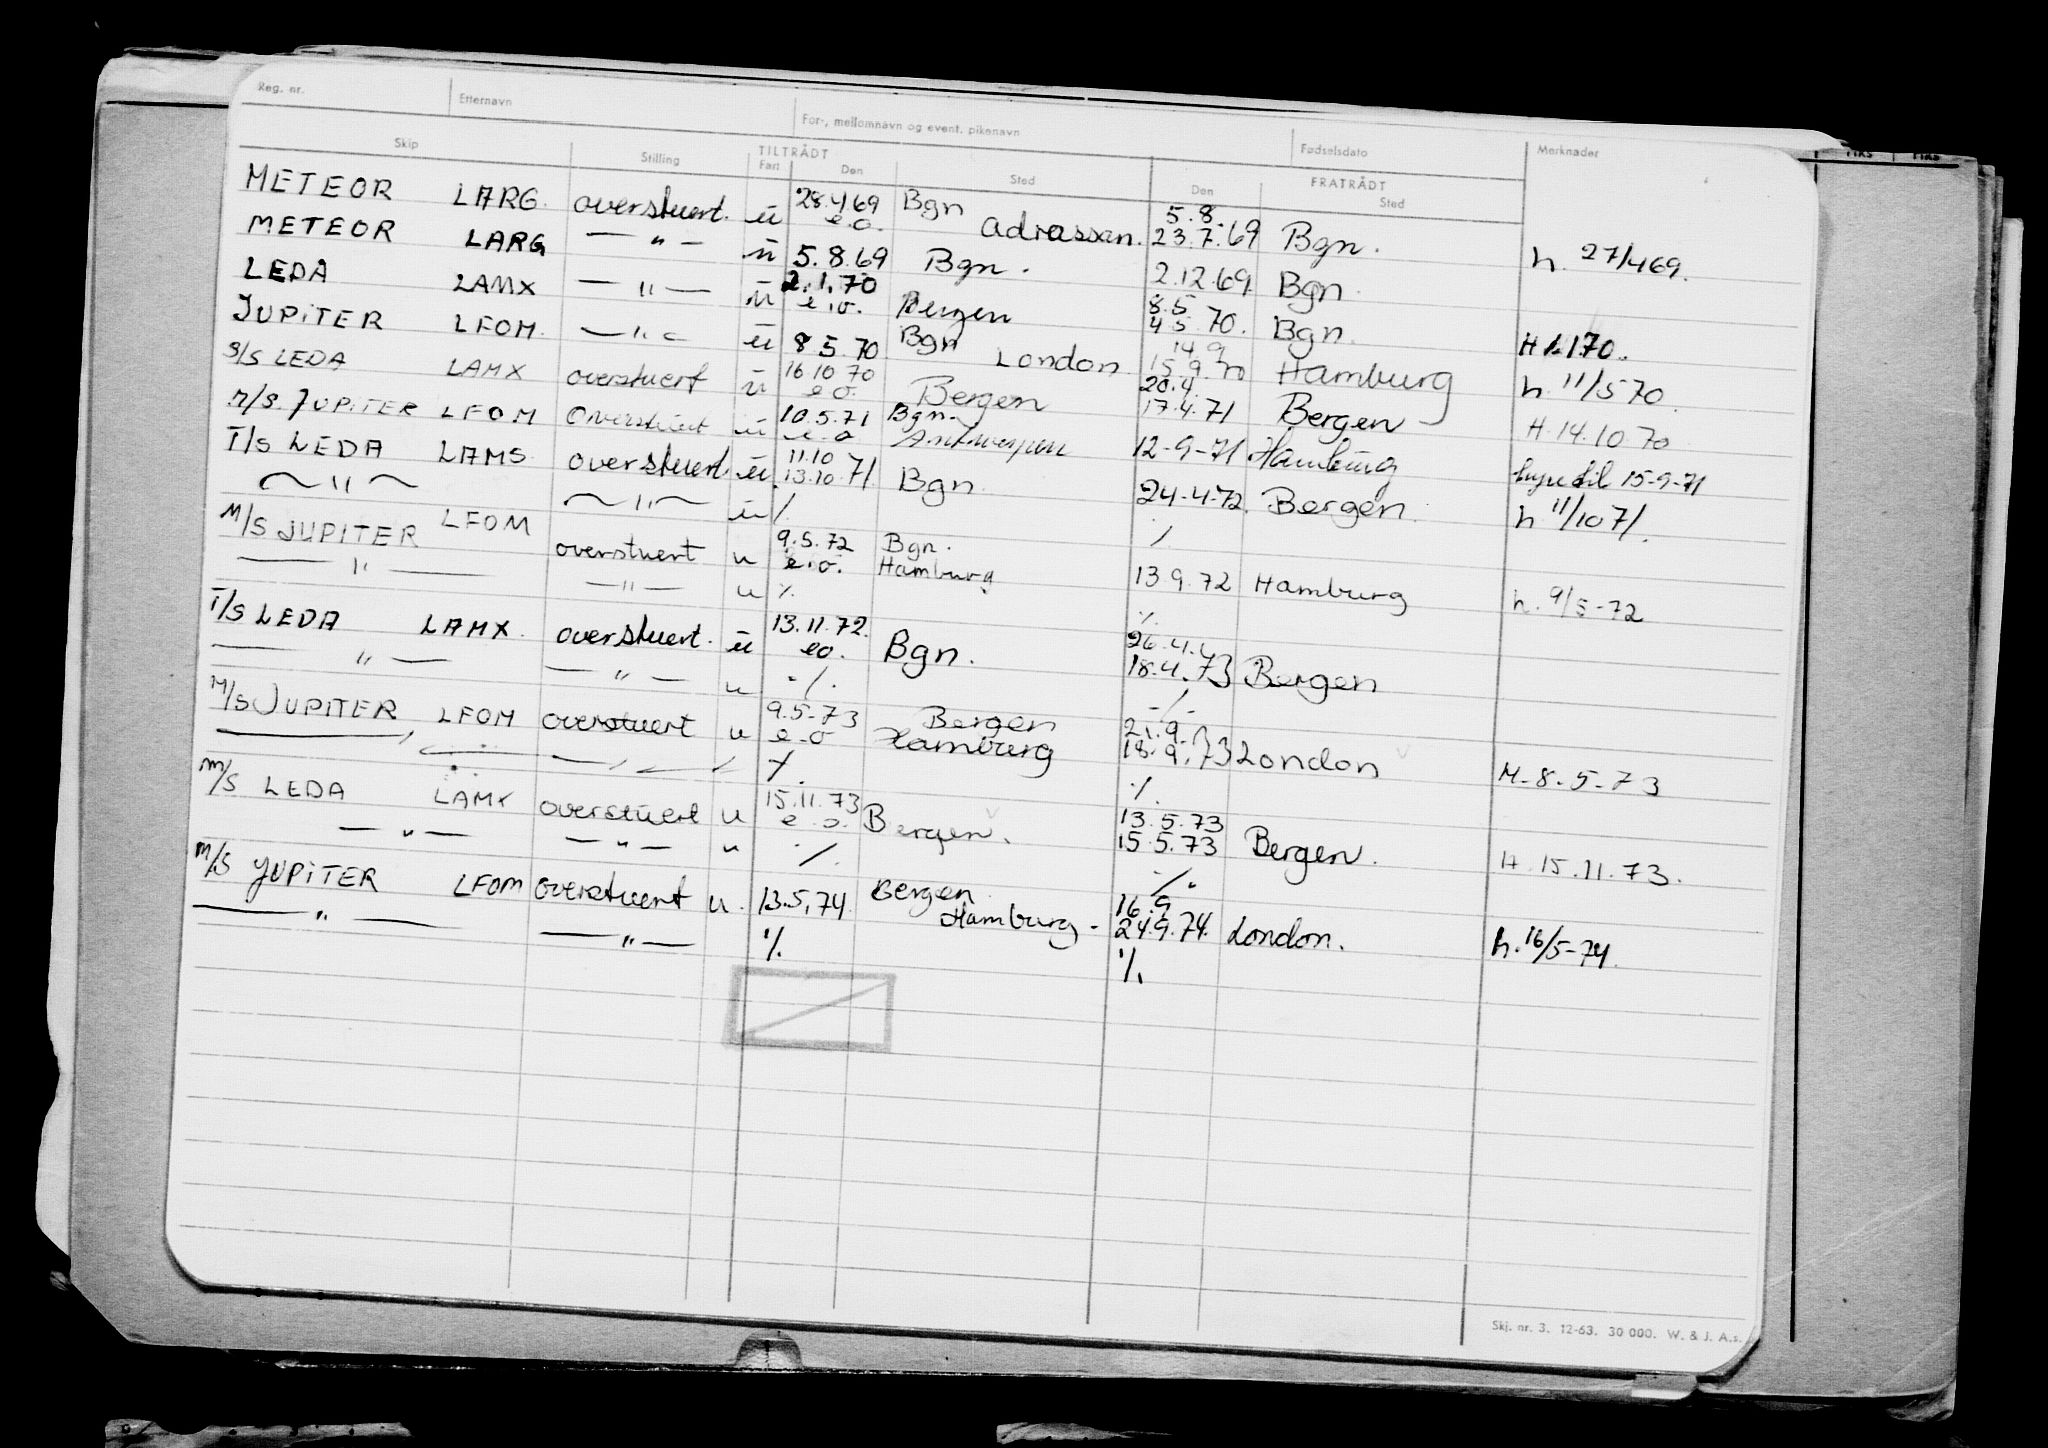 Reg. nr. Etternavn For-, mellomnavn og event. pikenavn Fødselsdato Merknader
Skip Stilling TILTRÅDT FRATRÅDT
Fart Den Sted Den Sted
METEOR LARG. overstuert. ü 28.4 69 Bgn 5.8.
e.o. Adrassen. 23.7.69 Bgn. h. 27/4 69.
METEOR LARG —"— ü 5.8.69 Bgn. 2.12.69 Bgn
LEDA LAMX —"— ü 2.1.70 8.5
e.o. Bergen 4 5 70. Bgn. H 2.1.70.
JUPITER LFOM. —"— ü 8 5.70 Bgn 14.9
London 15.9.70 Hamburg h. 11/5 70.
S/S LEDA LAMX overstuert ü 16 10 70 20.4
e o. Bergen 17.4.71 Bergen H. 14.10 70
M/S. JUPITER LFOM Overstuert ü 10.5.71 Bgn.
e.o Antwerpen 12-9-71 Hamburg hyre til 15-9-71
T/S LEDA LAMS. overstuert. ü 11.10
13.10.71 Bgn 24-4-72. Bergen. h 11/10 71.
—"— —"— ü /. /.
M/S JUPITER LFOM overstuert u 9.5.72 Bgn.
e.o. Hamburg 13.9.72 Hamburg h. 9/5-72
—"— —"— u /. /.
T/S LEDA LAMX. overstuert. ü 13.11.72. 26.4.
eo. Bgn. 18.4.73 Bergen
—"— —"— u -/. -/-
M/S JUPITER LFOM overstuert u 9.5-73 Bergen 21.9.
e.o Hamburg 18.9.73 London M-8-5-73
/. /.
M/S LEDA LAMX overstuert u 15.11.73 13.5.73
e.o. Bergen. 15.5.73 Bergen. H. 15.11.73.
—"— —"— u /. /.
M/S JUPITER LFOM overstuert u. 13.5.74 Bergen 16.9
Hamburg - 24.9.74. London. h. 16/5-74.
—"— —"— /. /.
Skj. nr. 3. 12-63. 30 000. W. & J. A.s.